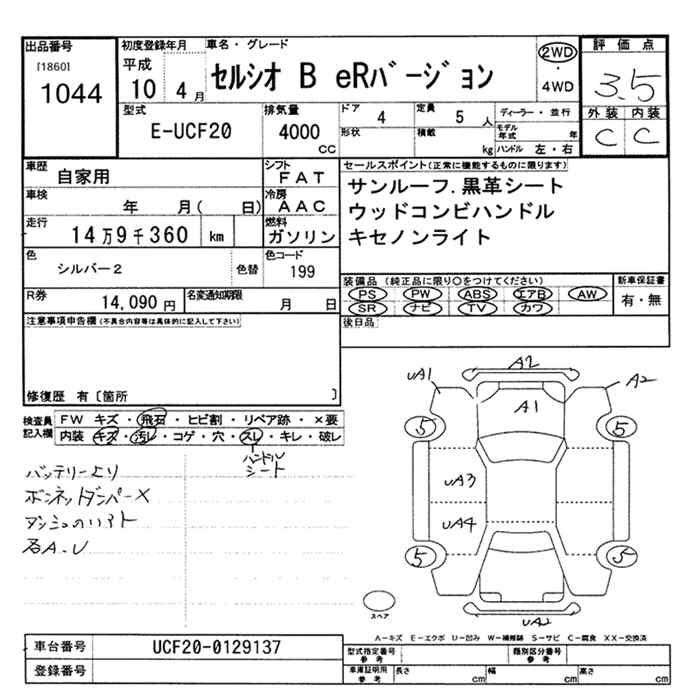 出品番号
[1860]
1044
初度登録年月
平成
10 4月
車名・グレード
セルシオ B eRバージョン
2WD
・
4WD
評価点
3.5
外装 内装
C C
型式
E-UCF20
排気量
4000
CC
ドア
4
形状
定員
5 人
積載
kg
ディーラー・並行
モデル年式 年
ハンドル 左・右
車歴
自家用
シフト
FAT
車検
年 月( 日)
冷房
AAC
走行
14万9千360 km
燃料
ガソリン
色
シルバー2
色替
色コード
199
R券
14,090 円
名変通知期限
月 日
セールスポイント(正常に機能するものに限ります)
サンルーフ.黒革シート
ウッドコンビハンドル
キセノンライト
装備品(純正品に限り○をつけてください)
PS PW ABS エアB AW
SR ナビ TV カワ
新車保証書
有・無
後日品
注意事項申告欄(不具合内容等は具体的に記入して下さい)
修復歴 有〔箇所 〕
検査員記入欄
FW キズ・飛石・ヒビ割・リペア跡・×要
内装 キズ・汚レ・コゲ・穴・スレ・キレ・破レ
ハンドル
シート
バッテリーより
ボンネットダンパーX
各A.U
A2
UA1
A2
A1
5
5
UA3
UA4
5
5
UA2
スペア
A-キズ E-エクボ U-凹み W-補修跡 S-サビ C-腐食 XX-交換済
車台番号
UCF20-0129137
登録番号
型式指定番号
参考
類別区分番号
参考
車庫証明用
参考
長さ cm
幅 cm
高さ cm